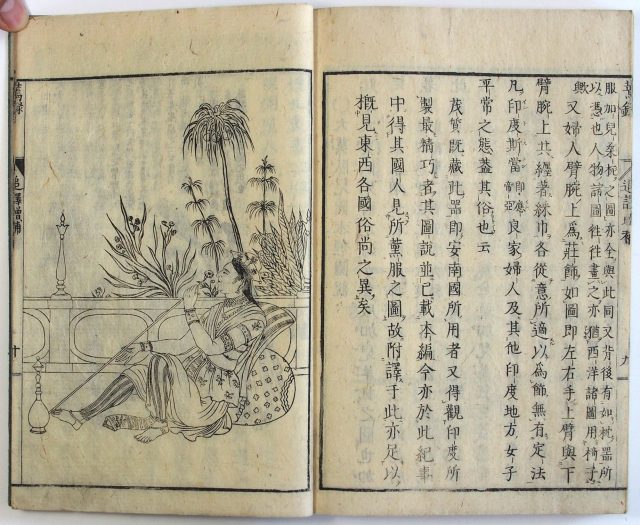 服加兒桑之圖亦全與此同又背後有如枕器所
以憑也人物諸圖往往畫之亦猶西洋諸圖用椅子
歟又婦人臂腕上爲莊飾如圖即左右手上臂與下
臂腕上共纏著絲巾各從意所適以爲飾無有定法
凡印度斯當良家婦人及其他印度地方女子
平常之態蓋其俗也云
茂質既藏此器即安南國所用者又得觀印度所
製最精巧者其圖說並已載本編今亦於此紀事
中得其國人見所薰服之圖故附譯于此亦足以
概見東西各國俗尚之異矣
追譯增補
十